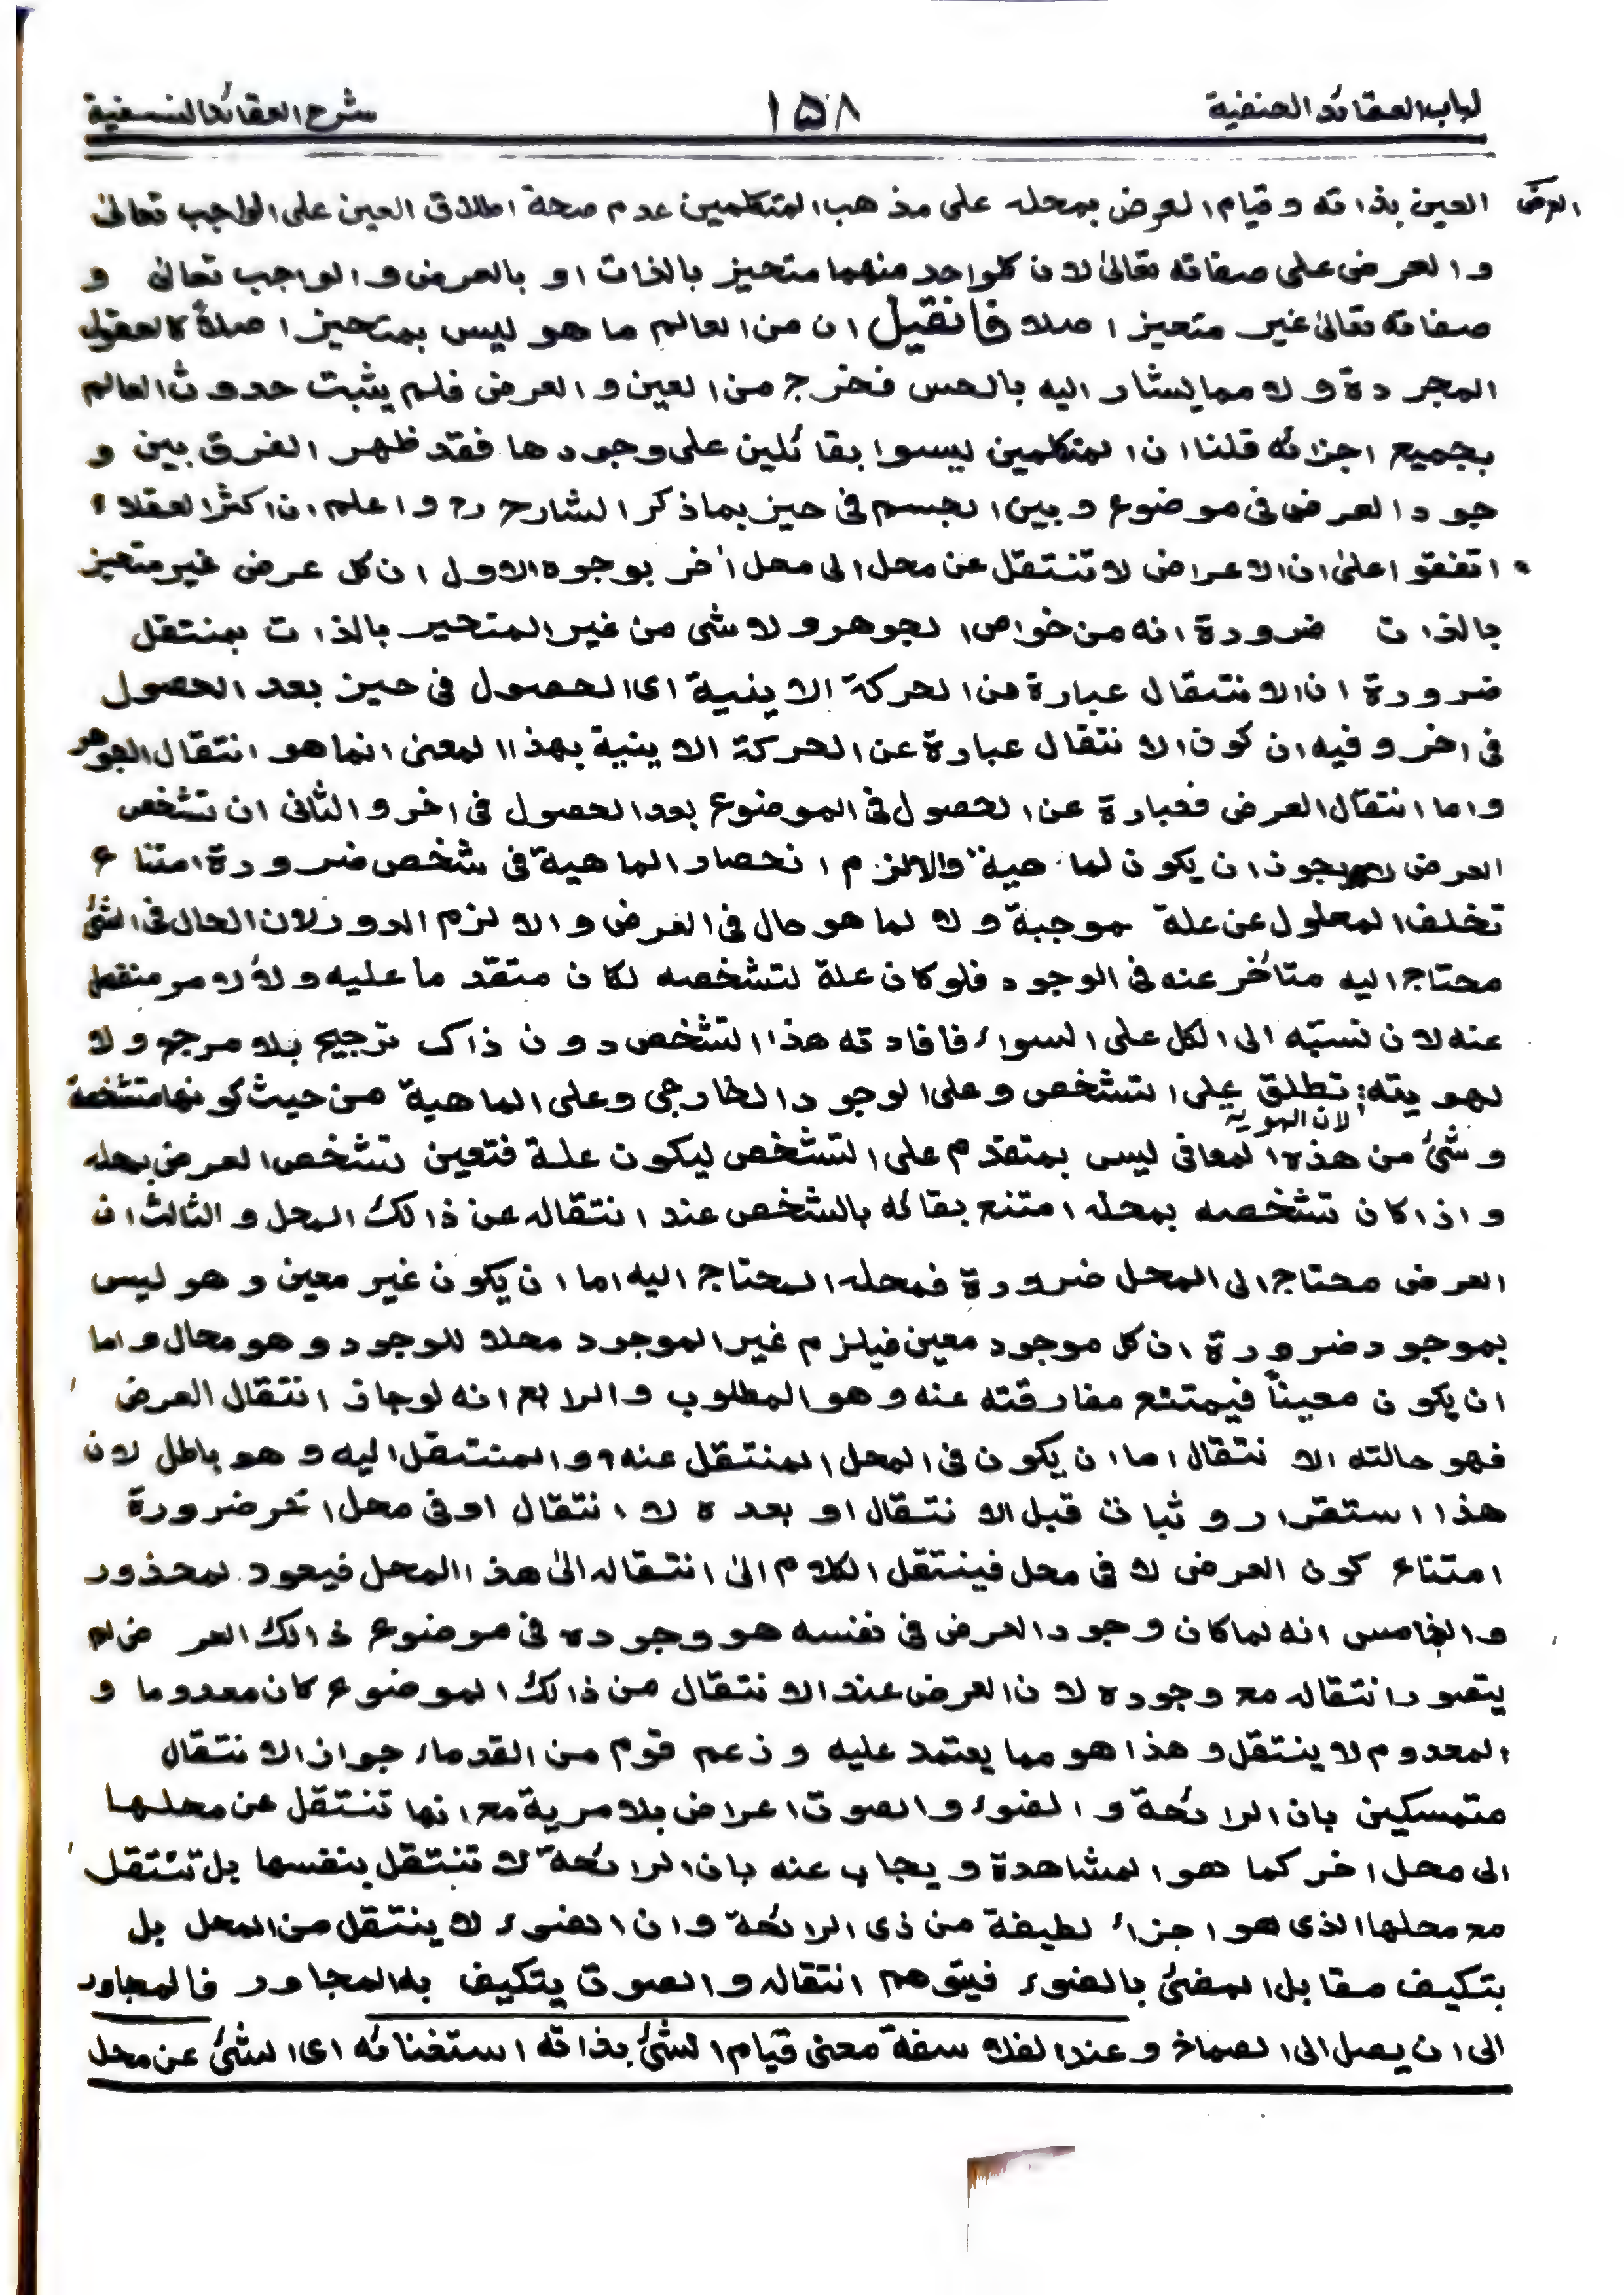 لباب العقائد الحنفية ۱۵۸ شرح العقائد النسفية
العرض
العين بذاته وقيام العرض بمحله على مذهب المتكلمين عدم صحة اطلاق العين على الواجب تعالىٰ
والعرض على صفاته تعالىٰ لان كلواحد منهما متحيز بالذات او بالعرض والواجب تعالى و
صفاته تعالىٰ غير متحيز اصلا فانقيل ان من العالم ما هو ليس بمتحيز اصلاً كالعقول
المجردة ولا مما يشار اليه بالحس فخرج من العين والعرض فلم يثبت حدوث العالم
بجميع اجزائه قلنا ان المتكلمين ليسوا بقائلين على وجودها فقد ظهر الفرق بين و
جود العرض فى موضوع وبين الجسم فى حيز بماذكر الشارح رح واعلم ان اكثر العقلاء
اتفقوا علىٰ ان الاعراض لا تنتقل عن محل الى محل اٰخر بوجوه الاول ان كل عرض غير متحيز
بالذات ضرورة انه من خواص الجوهر ولا شى من غير المتحيز بالذات بمنتقل
ضرورة ان الانتقال عبارة عن الحركة الاينية اى الحصول فى حيز بعد الحصول
فى اخر وفيه ان كون الانتقال عبارة عن الحركة الاينية بهذا المعنى انما هو انتقال الجوهر
واما انتقال العرض فعبارة عن الحصول فى الموضوع بعد الحصول فى اخر والثانى ان تشخص
العرض لايجوز ان يكون لماهية والالزم انحصار الماهية فى شخص ضرورة امتناع
تخلف المعلول عن علة موجبة ولا لما هو حال فى العرض والا لزم الدور لان الحال فى الشئ
محتاج اليه متأخر عنه فى الوجود فلو كان علة لتشخصه لكان متقدما عليه ولا لامر منفصل
عنه لان نسبته الى الكل على السواء فافادته هذا التشخص دون ذاك ترجيح بلا مرجح ولا
لهويته: تطلق على التشخص وعلى الوجود الخارجى وعلى الماهية من حيث كونها متشخصة
لان الهوية
وشئ من هذه المعانى ليس بمتقدم على التشخص ليكون علة فتعين تشخص العرض بمحله
واذا كان تشخصه بمحله امتنع بقائه بالشخص عند انتقاله عن ذالك المحل والثالث ان
العرض محتاج الى المحل ضرورة فمحله المحتاج اليه اما ان يكون غير معين وهو ليس
بموجود ضرورة ان كل موجود معين فيلزم غير الموجود محلا للوجود وهو محال واما
ان يكون معيناً فيمتنع مفارقته عنه وهو المطلوب والرابع انه لوجاز انتقال العرض
فهو حالته الانتقال اما ان يكون فى المحل المنتقل عنه او المنتقل اليه وهو باطل لان
هذا استقرار وثبات قبل الانتقال او بعده لا انتقال او فى محل اٰخر ضرورة
امتناع كون العرض لا فى محل فينتقل الكلام الىٰ انتقاله الىٰ هذا المحل فيعود لمحذور
والخامس انه لما كان وجود العرض فى نفسه هو وجوده فى موضوع ذالك العرض لم
يتصور انتقاله مع وجوده لان العرض عند الانتقال من ذالك الموضوع كان معدوما و
المعدوم لا ينتقل وهذا هو مما يعتمد عليه وزعم قوم من القدماء جواز الانتقال
متمسكين بان الرائحة والضوء والصوت اعراض بلا مرية مع انها تنتقل عن محلها
الى محل اخر كما هو المشاهدة ويجاب عنه بان الرائحة لا تنتقل بنفسها بل تنتقل
مع محلها الذى هو اجزاء لطيفة من ذى الرائحة وان الضوء لا ينتقل من المحل بل
بتكيف مقابل المضئ بالضوء فيتوهم انتقاله والصوت يتكيف به المجاور فالمجاور
الى ان يصل الى الصماخ وعند الفلاسفة معنى قيام الشئ بذاته استغنائه اى الشئ عن محل